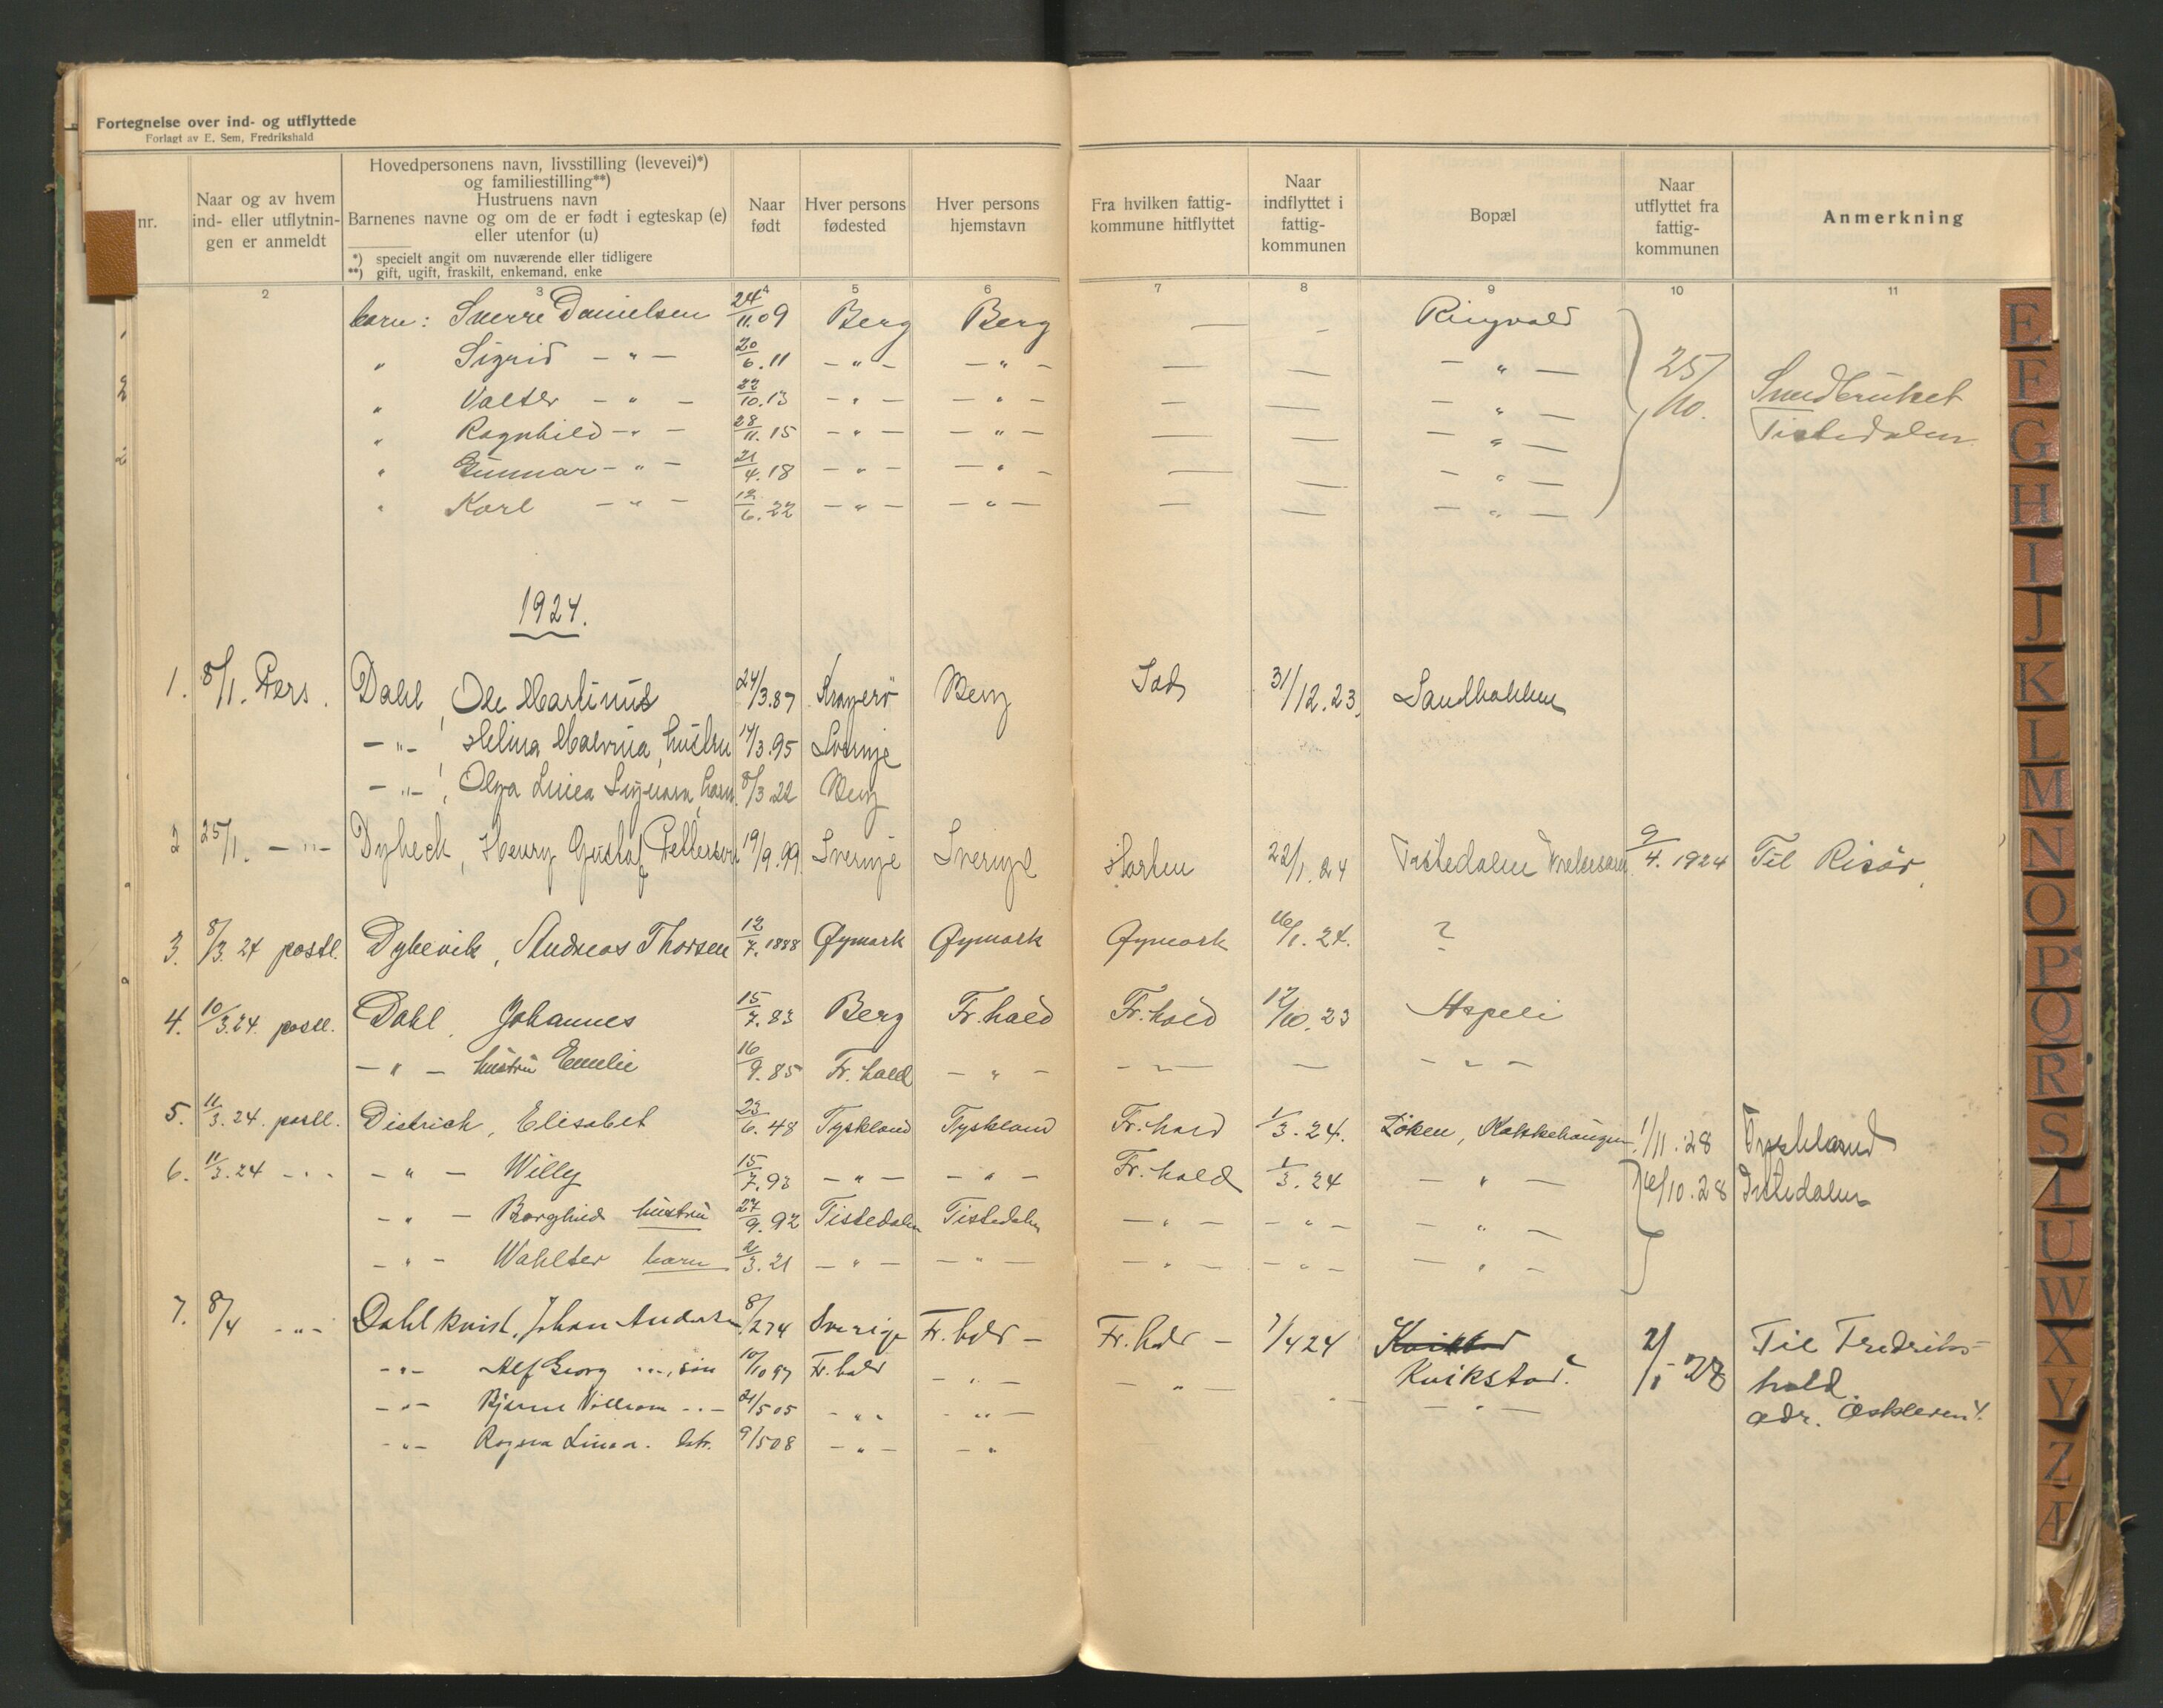 Fortegnelse over ind- og utflyttede
Forlagt av E. Sem, Fredrikshald
nr.
Naar og av hvem ind- eller utflytnin- gen er anmeldt
Hovedpersonens navn, livsstilling (levevei)*) og familiestilling**) Hustruens navn Barnenes navne og om de er født i egteskap (e) eller utenfor (u)
*) specielt angit om nuværende eller tidligere
**) gift, ugift, fraskilt, enkemand, enke
Naar født
Hver persons fødested
Hver persons hjemstavn
Fra hvilken fattig- kommune hitflyttet
Naar indflyttet i fattig- kommunen
Bopæl
Naar utflyttet fra fattig- kommunen
Anmerkning
2 3 4 5 6 7 8 9 10 11
barn: Sverre Danielsen 24/11.09 Berg Berg — — Ringvold
" Sigrid - " - 20/6.11 - " - - " - — — - " -
" Valter - " - 22/10.13 - " - - " - — — - " - 25/10. Smedbruket
" Ragnhild - " - 28/11.15 - " - - " - — — - " - Tistedalen
" Gunnar - " - 21/4.18 - " - - " - — — - " -
" Karl - " - 12/6.22 - " - - " - — — - " -
1924.
1. 8/1. Pers. Dahl, Ole Martinus 24/3.87 Kragerö Berg Id 31/12.23 Sandbakken
- " -, Helina Malvina, hustru 14/3.95 Sverige
- " -, Olga Linea Signora, barn 8/3.22 Berg
2 25/1. - " - Dybeck, Henry Gustaf Petterson 19/9.99 Sverige Sverige Horten 22/1.24 Tistedalen 9/4.1924 Til Risör
3. 8/3.24 postl. Dybevik, Andreas Thorsen 12/7.1888 Øymark Øymark Øymark 16/1.24. ?
4. 10/3.24. postl. Dahl, Johannes 15/7.83 Berg Fr.hald Fr.hald 12/10.23 Aspeli
- " - hustru Emelie 16/9.85 Fr.hald - " - - " - — - " -
5. 11/3.24. postl. Dietrich, Elisabet 23/6.48 Tyskland Tyskland Fr.hald 1/3.24. Löken, Kakkehaugen 1/11.28 Tyskland
6. 11/3.24 - " - - " - Willy 15/7.92 - " - - " - Fr.hald 1/3.24 - " - 16/10.28 Tistedalen
- " - Borghild hustru 27/9.92 Tistedalen Tistedalen - " - - " - - " -
- " - Wahlter barn 2/3.21 - " - - " - - " - - " - - " -
7. 8/4 - " - Dahlkvist, Johan Anders 8/2 74 Sverige Fr.hald - Fr.hald - 1/4 24 Kvikstad 2/1-28 Til Fredriks-
- " - Alf Georg - " -, sön 10/10 97 Fr.hald - " - - " - Kvikstad. hald.
- " - Bjarne Villiam - " - 21/5 05 - " - - " - - " - adr. Oskleven 4.
- " - Ragna Linea. dtr. 9/5 08 - " - - "
E
F
G
H
I
J
K
L
M
N
O
P
Q
R
S
T
U
W
X
Y
Z
Æ